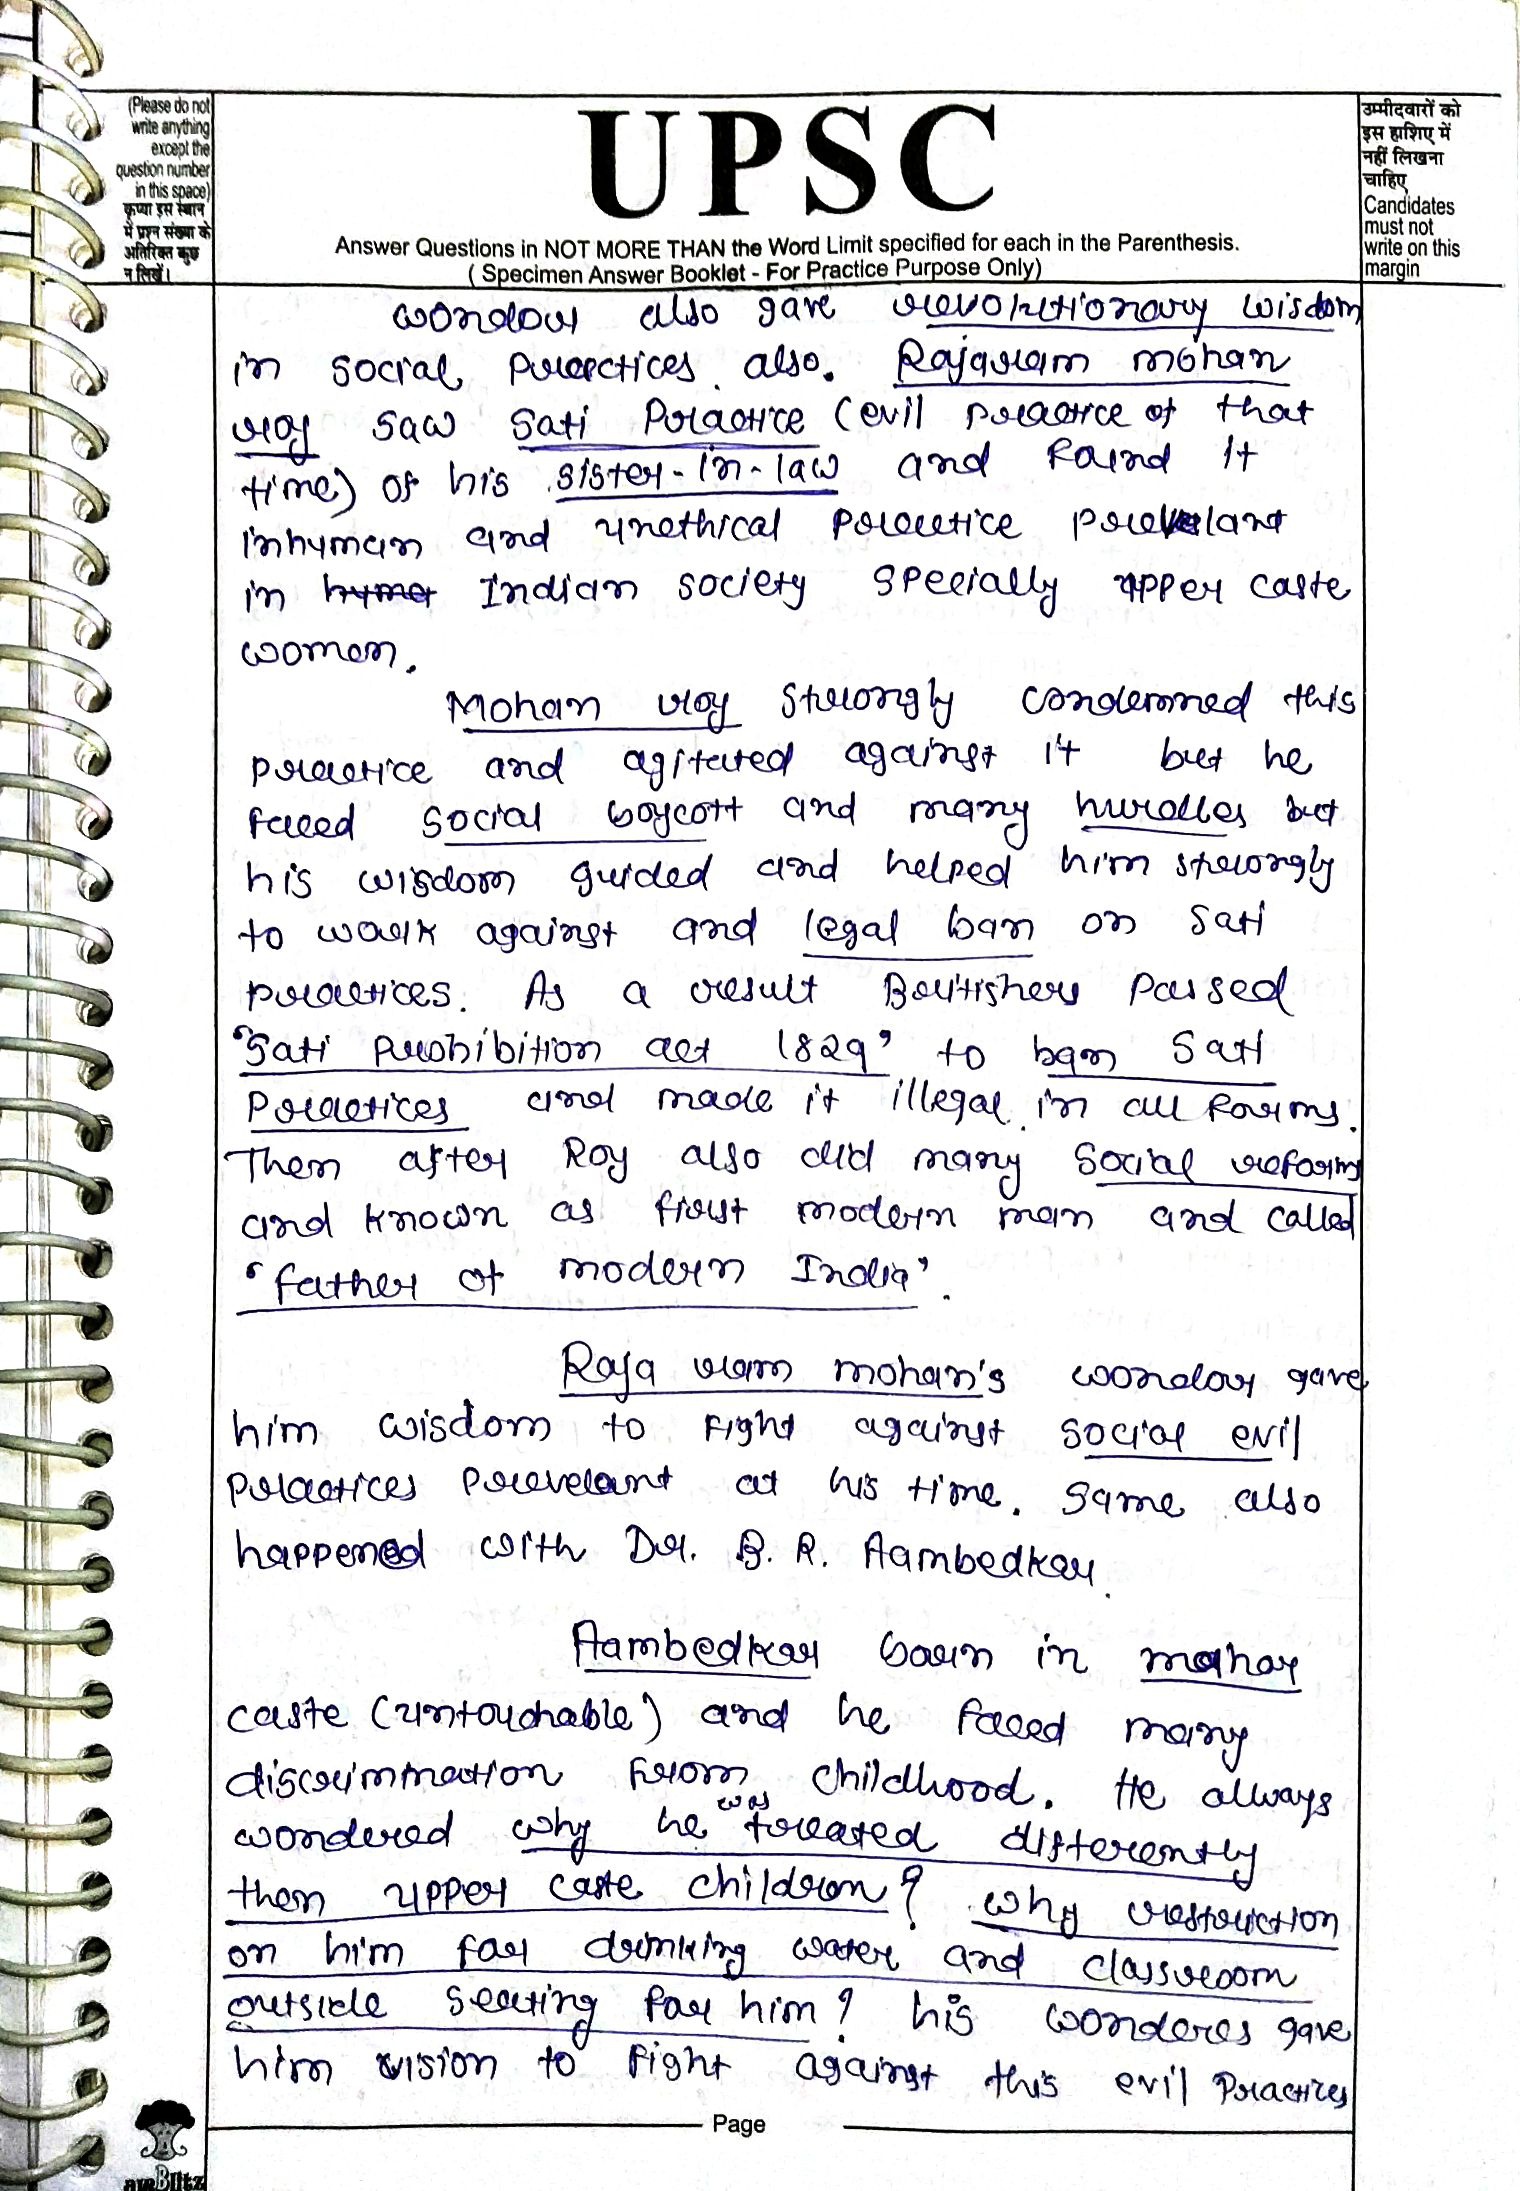 (Please do not
write anything
except the
question number
in this space)
कृप्या इस स्थान
में प्रश्न संख्या के
अतिरिक्त कुछ
न लिखें।
UPSC
Answer Questions in NOT MORE THAN the Word Limit specified for each in the Parenthesis.
( Specimen Answer Booklet - For Practice Purpose Only)
उम्मीदवारों को
इस हाशिए में
नहीं लिखना
चाहिए
Candidates
must not
write on this
margin
wondour also gave revolutionary wisdom
in social practices also. Rajaram mohan
roy saw Sati Practice (evil practice of that
time) of his sister-in-law and found it
inhuman and unethical practice prevelant
in Indian society specially upper caste
women.
Mohan roy strongly condemned this
practice and agitated against it but he
faced social boycott and many hurdles but
his wisdom guided and helped him strongly
to work against and legal ban on sati
practices. As a result Britishers passed
'Sati prohibition act 1829' to ban Sati
Practices and made it illegal in all forms.
Then after Roy also did many social reforms
and known as first modern man and called
'father of modern India'.
Raja ram mohan's wondour gave
him wisdom to fight against social evil
practices prevelant at his time. Same also
happened with Dr. B. R. Aambedkar.
Aambedkar born in mahar
caste (untouchable) and he faced many
discrimination from childhood. He always
wondered why he was treated differently
then upper caste children? why restriction
on him for drinking water and classroom
outside seating for him? his wonderes gave
him vision to fight against this evil practices
Page